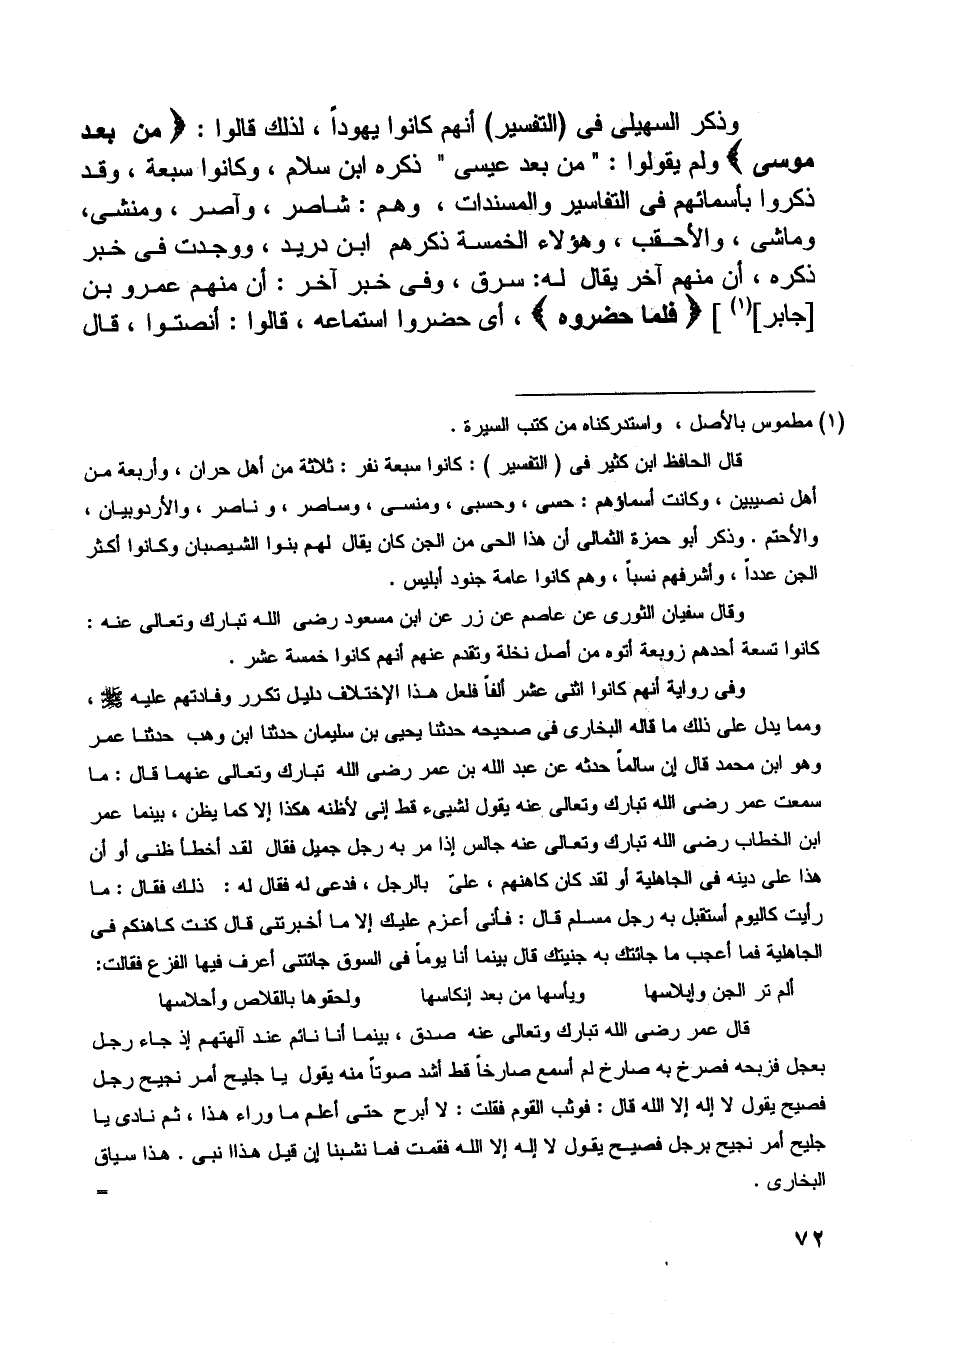 وذكر السهيلى فى (التفسير) أنهم كانوا يهوداً ، لذلك قالوا : ﴿ من بعد
موسى ﴾ ولم يقولوا : " من بعد عيسى " ذكره ابن سلام ، وكانوا سبعة ، وقد
ذكروا بأسمائهم فى التفاسير والمسندات ، وهم : شاصر ، وآصر ، ومنشى،
وماشى ، والأحقب ، وهؤلاء الخمسة ذكرهم ابن دريد ، ووجدت فى خبر
ذكره ، أن منهم آخر يقال له: سرق ، وفى خبر آخر : أن منهم عمرو بن
[جابر](١) ] ﴿ فلما حضروه ﴾ ، أى حضروا استماعه ، قالوا : أنصتوا ، قال
(١) مطموس بالأصل ، واستدركناه من كتب السيرة .
قال الحافظ ابن كثير فى ( التفسير ) : كانوا سبعة نفر : ثلاثة من أهل حران ، وأربعة من
أهل نصيبين ، وكانت أسماؤهم : حسى ، وحسبى ، ومنسى ، وساصر ، و ناصر ، والأردوبيان ،
والأحتم . وذكر أبو حمزة الثمالى أن هذا الحى من الجن كان يقال لهم بنوا الشيصبان وكانوا أكثر
الجن عدداً ، وأشرفهم نسباً ، وهم كانوا عامة جنود أبليس .
وقال سفيان الثورى عن عاصم عن زر عن ابن مسعود رضى الله تبارك وتعالى عنه :
كانوا تسعة أحدهم زوبعة أتوه من أصل نخلة وتقدم عنهم أنهم كانوا خمسة عشر .
وفى رواية أنهم كانوا اثنى عشر ألفاً فلعل هذا الإختلاف دليل تكرر وفادتهم عليه ﷺ ،
ومما يدل على ذلك ما قاله البخارى فى صحيحه حدثنا يحيى بن سليمان حدثنا ابن وهب حدثنا عمر
وهو ابن محمد قال إن سالماً حدثه عن عبد الله بن عمر رضى الله تبارك وتعالى عنهما قال : ما
سمعت عمر رضى الله تبارك وتعالى عنه يقول لشيىء قط إنى لأظنه هكذا إلا كما يظن ، بينما عمر
ابن الخطاب رضى الله تبارك وتعالى عنه جالس إذا مر به رجل جميل فقال لقد أخطأ ظنى أو أن
هذا على دينه فى الجاهلية أو لقد كان كاهنهم ، علىّ بالرجل ، فدعى له فقال له : ذلك فقال : ما
رأيت كاليوم أستقبل به رجل مسلم قال : فأنى أعزم عليك إلا ما أخبرتنى قال كنت كاهنكم فى
الجاهلية فما أعجب ما جائتك به جنيتك قال بينما أنا يوماً فى السوق جائتنى أعرف فيها الفزع فقالت:
ألم تر الجن وإبلاسها ويأسها من بعد إنكاسها ولحقوها بالقلاص وأحلاسها
قال عمر رضى الله تبارك وتعالى عنه صدق ، بينما أنا نائم عند آلهتهم إذ جاء رجل
بعجل فزبحه فصرخ به صارخ لم أسمع صارخاً قط أشد صوتاً منه يقول يا جليح أمر نجيح رجل
فصيح يقول لا إله إلا الله قال : فوثب القوم فقلت : لا أبرح حتى أعلم ما وراء هذا ، ثم نادى يا
جليح أمر نجيح برجل فصيح يقول لا إله إلا الله فقمت فما نشبنا إن قيل هذاا نبى . هذا سياق
البخارى .
=
٧٢